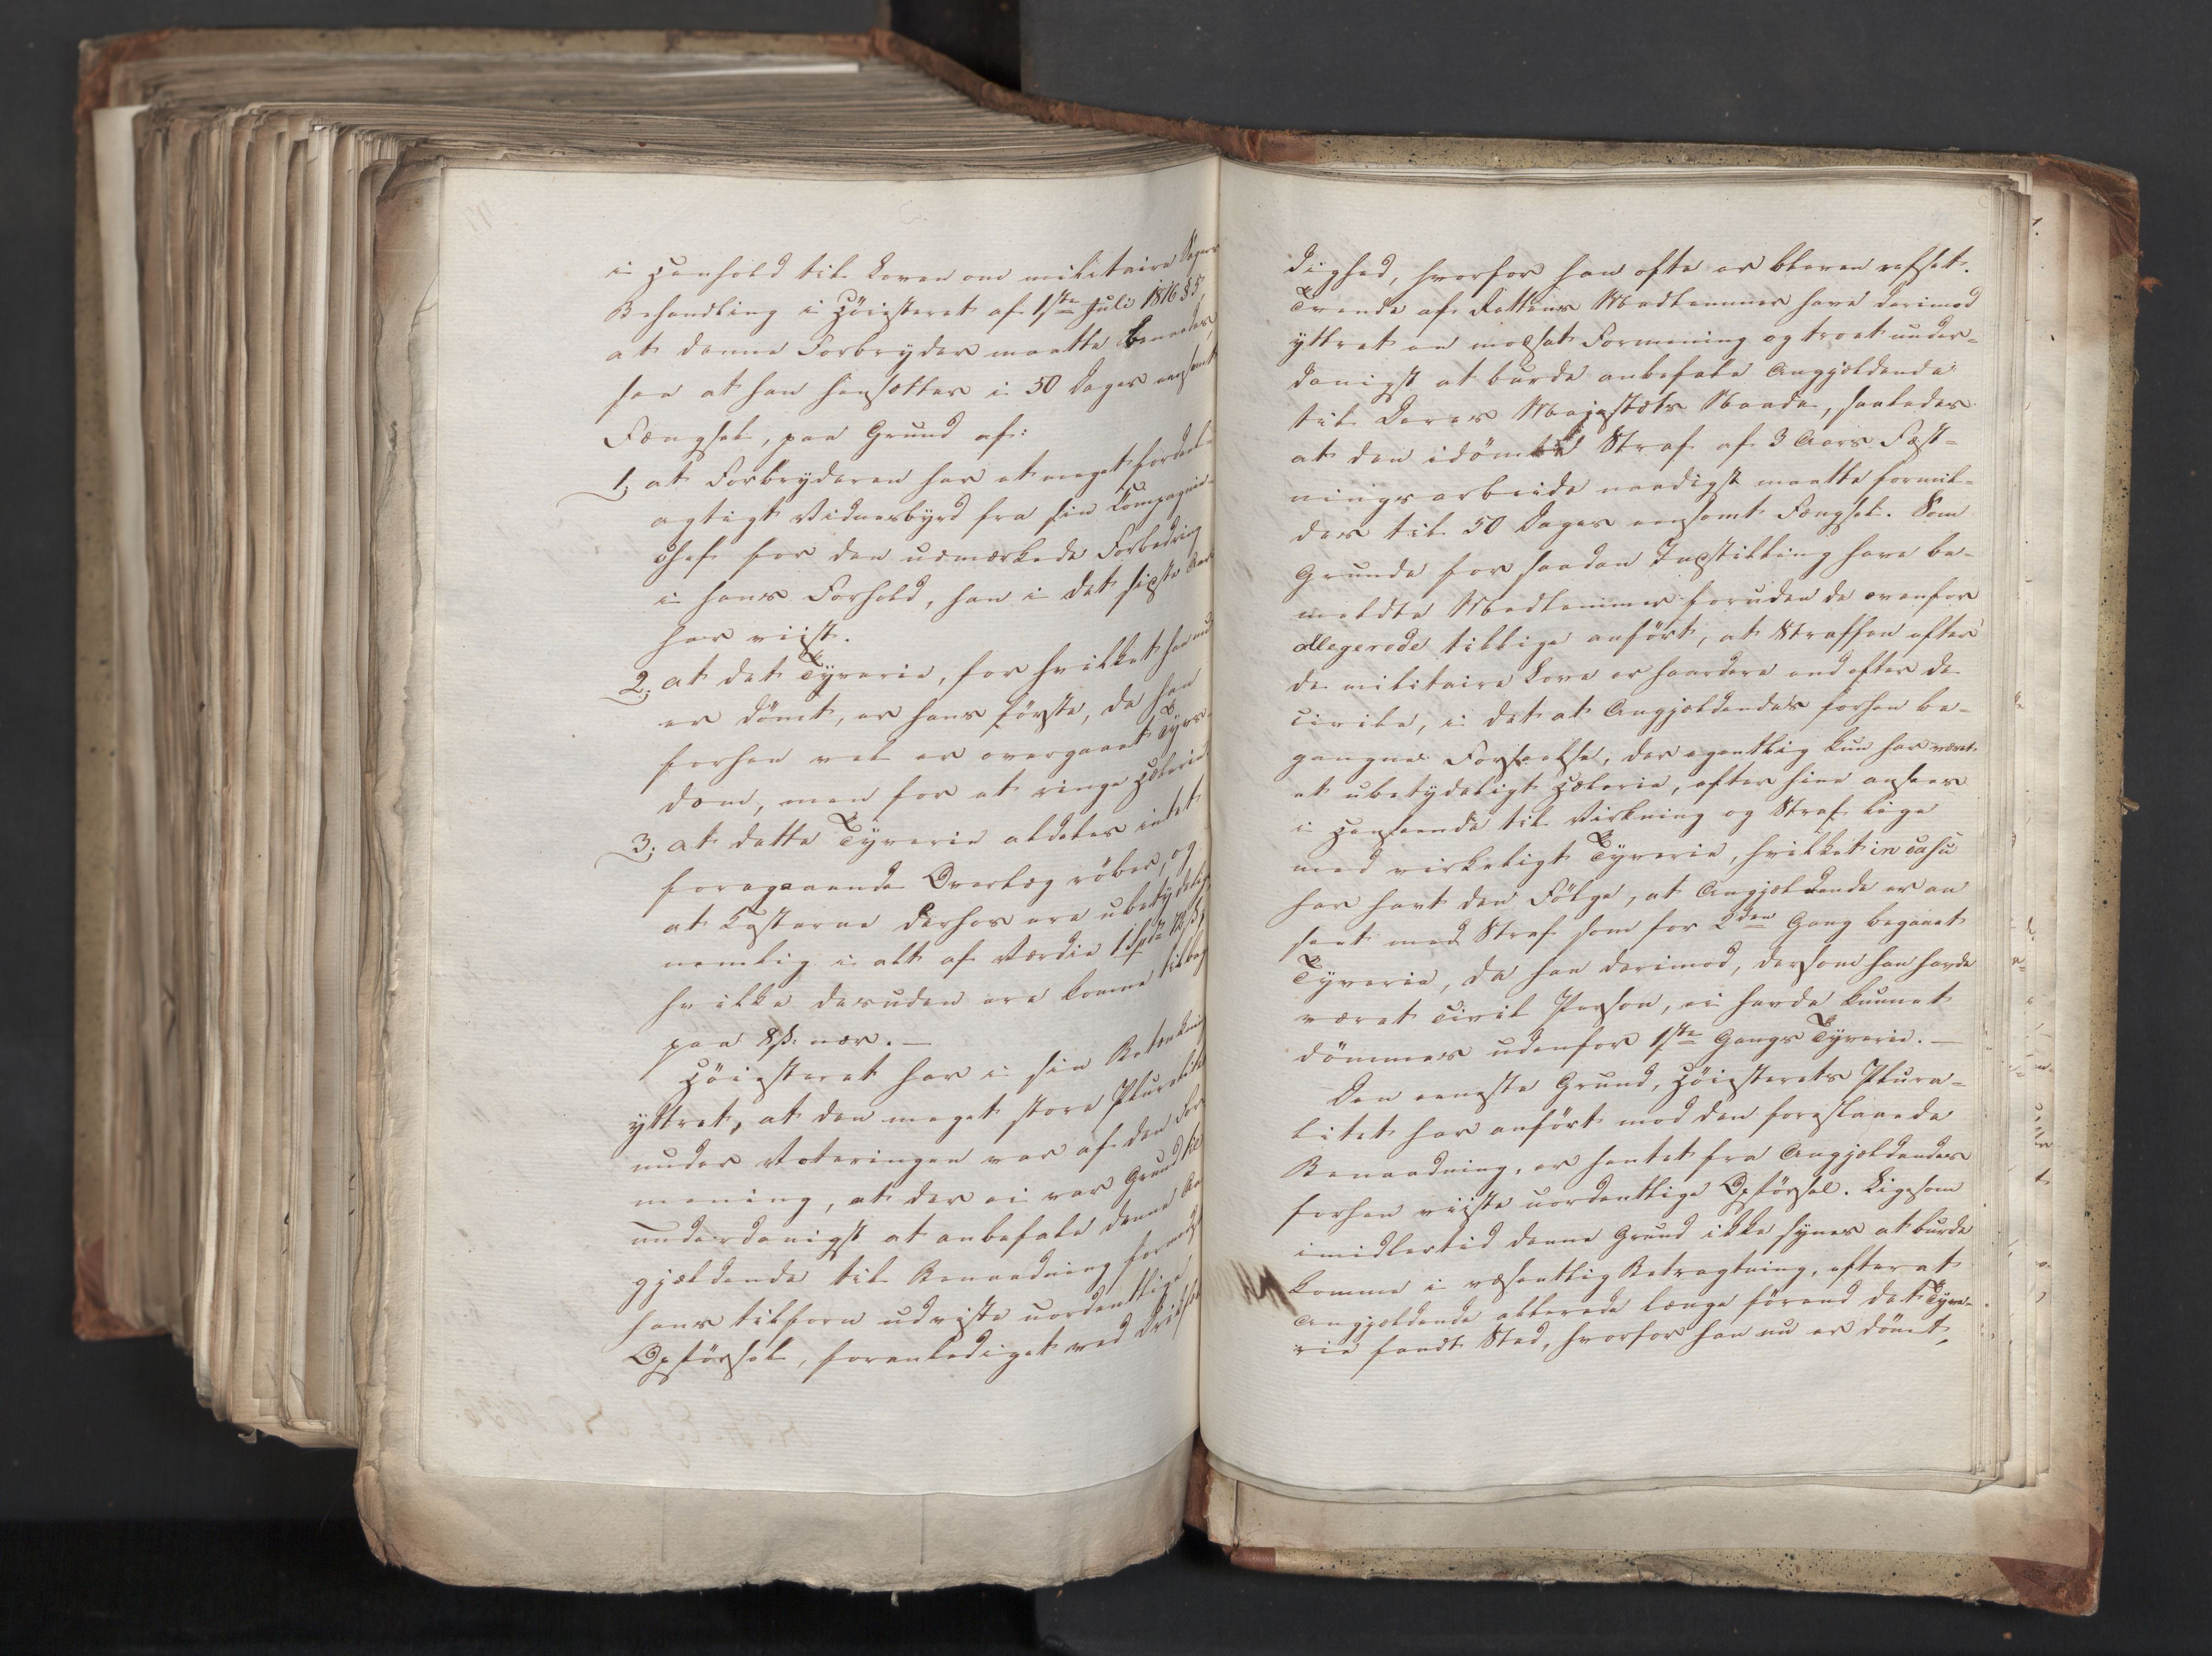 i Henhold til Loven om militaire Sagers
Behandling i Höiesteret af 1ste Juli 1816 § 5,
at denne Forbryder maatte benaades,
saa at han hensættes i 50 Dages eensomt
Fængsel, paa Grund af:
1, at Forbryderen har et meget fordeel-
agtigt Vidnesbyrd fra sin Compagnie-
chef for den udmærkede Forbedring
i hans Forhold, han i det sidste Aar
har viist.
2, at det Tyverie, for hvilket han nu
er dömt, er hans förste, da han
forhen vel er overgaaet Tyvs-
dom, men for et ringe Hælerie
3, at dette Tyverie aldeles intet
foregaaende Overlæg röber, og
at Kosterne derhos ere ubetydelige
nemlig i alt af Værdie 1 Spd
hvilke desuden ere komne tilbage
paa 8 ß: nær. —
Höiesteret har i sin Betænkning
yttret, at den meget store Pluralitet
under Voteringen var af den For-
mening, at der ei var Grund til
underdanigst at anbefale denne An-
gjældende til Benaadning formedelst
hans tilforn udviste uordentlige
Opförsel, foranlediget ved Drikfæl-
dighed, hvorfor han ofte er bleven refset.
Tvende af Rettens Medlemmer have derimod
yttret en modsat Formening og troet under-
danigst at burde anbefale Angjældende
til Deres Majestæts Naade, saaledes
at den idömte Straf af 3 Aars Fæst-
ningsarbeide naadigst maatte formil-
des til 50 Dages eensomt Fængsel. Som
Grunde for saadan Indstilling have be-
meldte Medlemmer foruden de ovenfor
allegerede tillige anfört, at Straffen efter
de militaire Love er haardere end efter de
civile, i det at Angjældendes forhen be-
gangne Forseelse, der egentlig kun har været
et ubetydeligt Hælerie, efter hine ansees
i Henseende til Virkning og Straf lige
med virkeligt Tyverie, hvilket in casu
har havt den Fölge, at Angjældende er an
seet med Straf som for 2den Gang begaaet
Tyverie, da han derimod, dersom han havde
været civil Person, ei havde kunnet
dömmes udenfor 1ste Gangs Tyverie. —
Den eeneste Grund, Höiesterets Plura-
litet har anfört mod den foreslaaede
Benaadning, er hentet fra Angjældendes
forhen viiste uordentlige Opförsel. Ligesom
imidlertid denne Grund ikke synes at burde
komme i væsentlig Betragtning, efterat
Angjældende allerede længe förend det Tyve-
rie fandt Sted, hvorfor han nu er dömt,